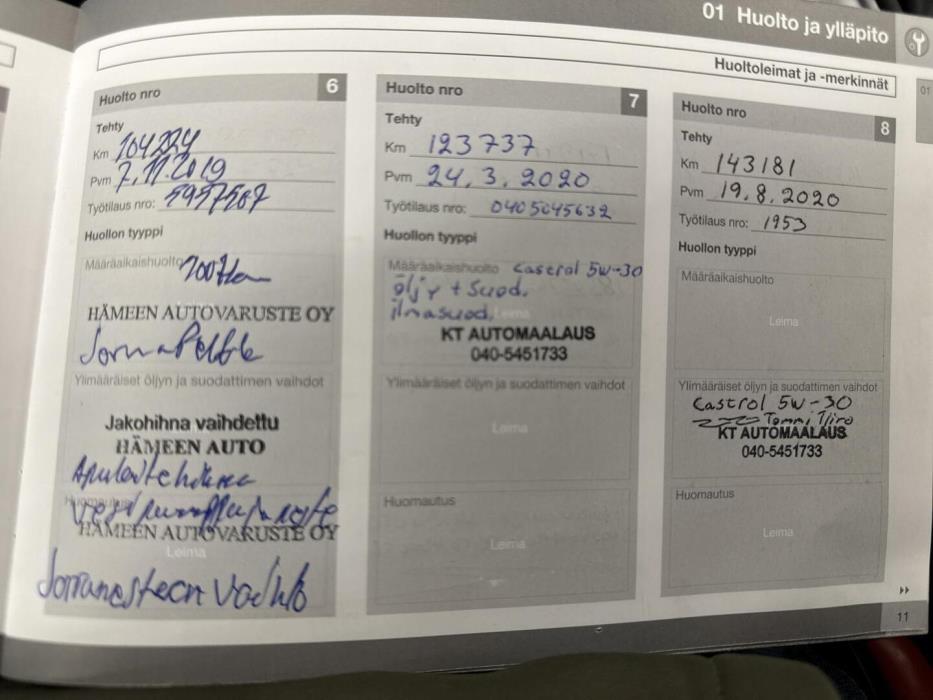 01 Huolto ja ylläpito
Huoltoleimat ja -merkinnät
01
Huolto nro 6
Tehty
Km 104224
Pvm 7.11.2019
Työtilaus nro: 5957587
Huollon tyyppi
Määräaikaishuolto
HÄMEEN AUTOVARUSTE OY
Ylimääräiset öljyn ja suodattimen vaihdot
Jakohihna vaihdettu
HÄMEEN AUTO
Apulaitehihna
Huomautus
HÄMEEN AUTOVARUSTE OY
Leima
Jarrunesteen vaihto
Huolto nro 7
Tehty
Km 123737
Pvm 24.3.2020
Työtilaus nro: 0405045632
Huollon tyyppi
Määräaikaishuolto Castrol 5W-30
öljy + suod.
ilmasuod. Leima
KT AUTOMAALAUS
040-5451733
Ylimääräiset öljyn ja suodattimen vaihdot
Leima
Huomautus
Leima
Huolto nro 8
Tehty
Km 143181
Pvm 19.8.2020
Työtilaus nro: 1953
Huollon tyyppi
Määräaikaishuolto
Leima
Ylimääräiset öljyn ja suodattimen vaihdot
Castrol 5W-30
Tommi
KT AUTOMAALAUS
040-5451733
Huomautus
Leima
11